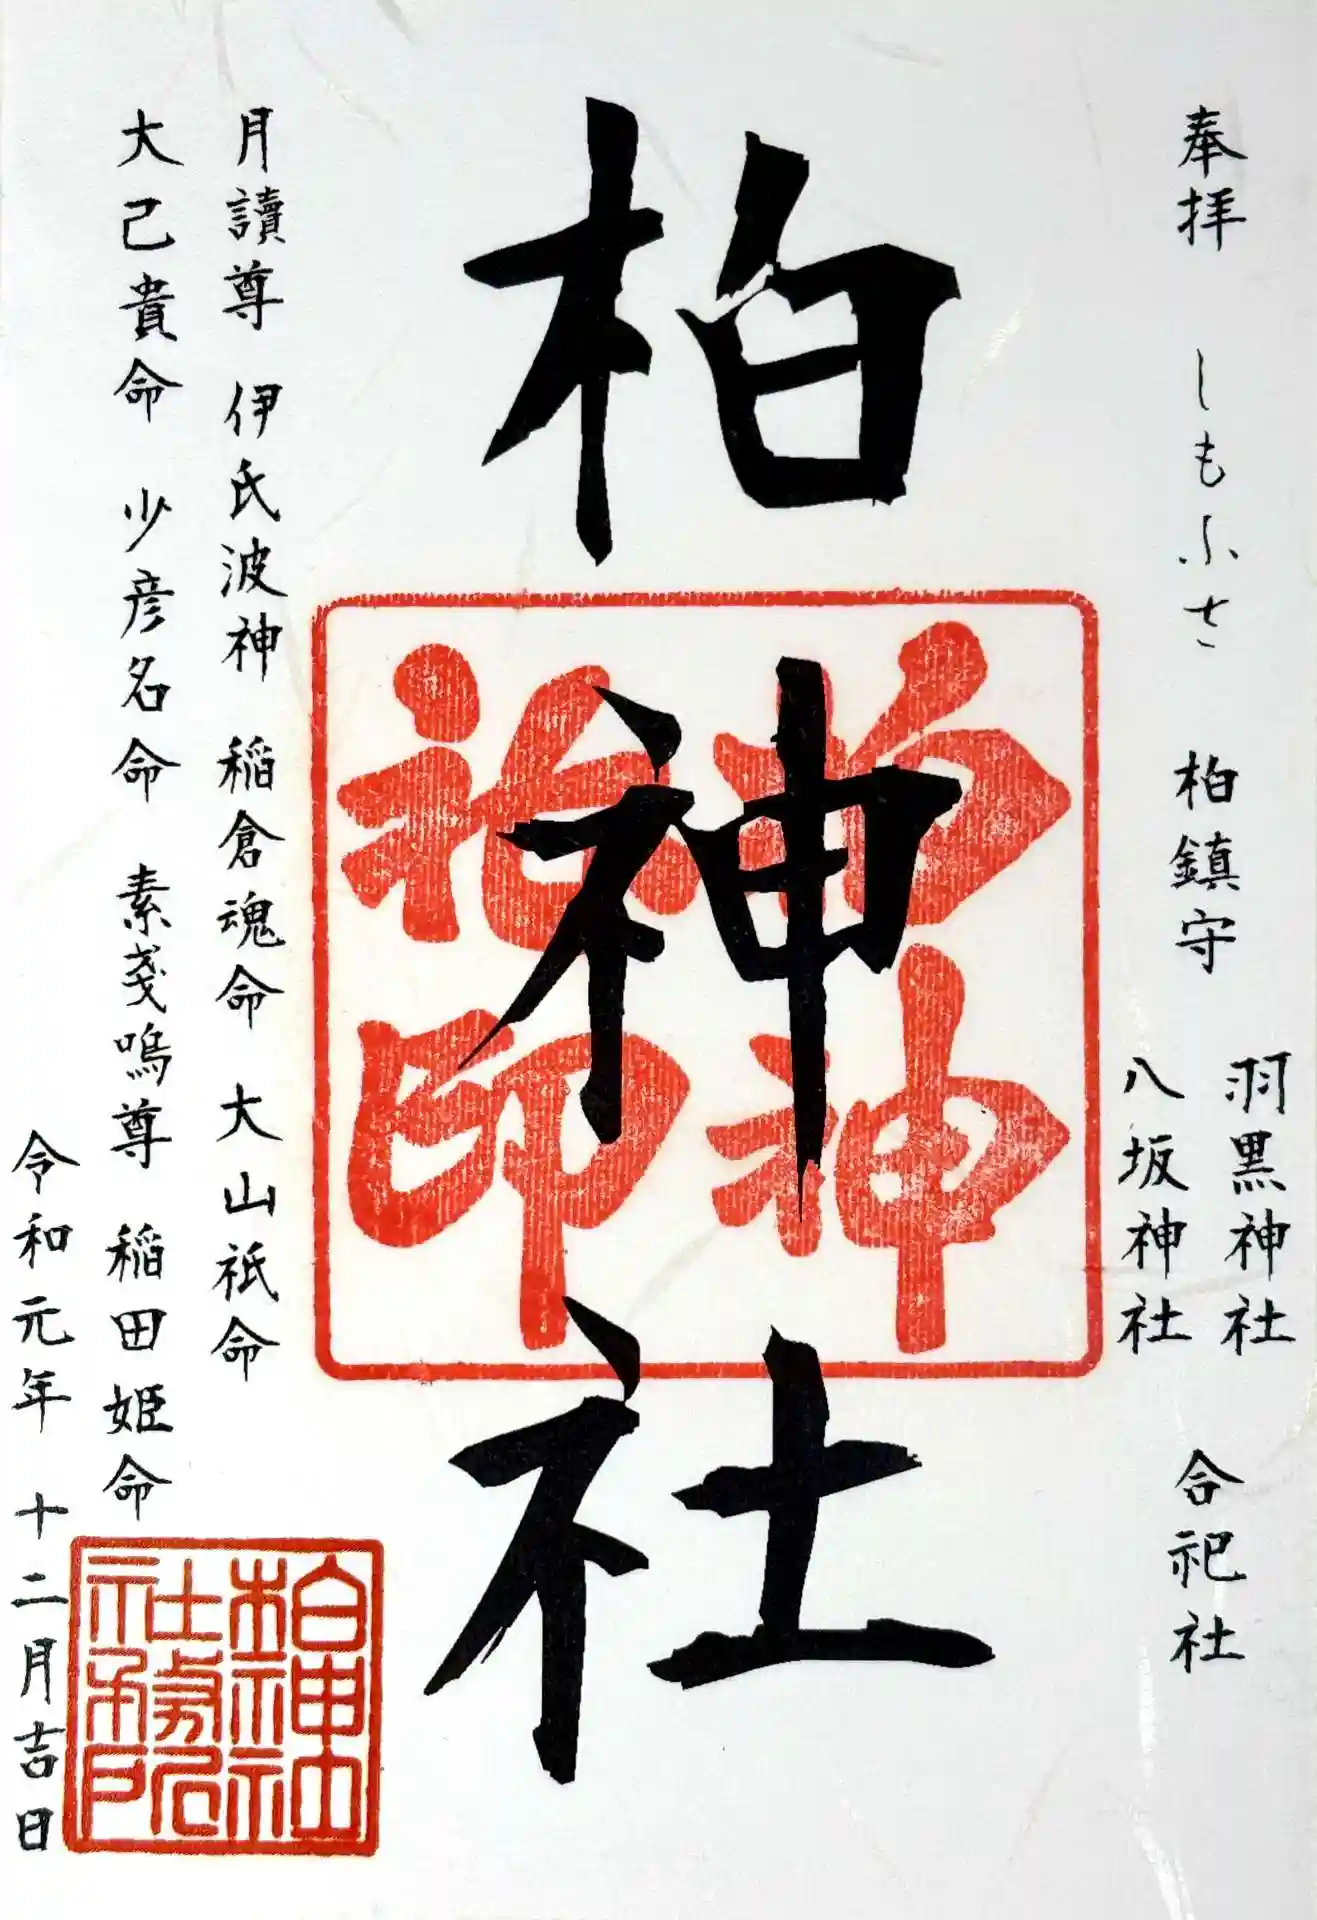 奉拝 しもふさ 柏鎮守
羽黒神社
八坂神社
合祀社
柏神社
柏神社印
月讀尊 伊氐波神 稲倉魂命 大山祇命
大己貴命 少彦名命 素戔嗚尊 稲田姫命
令和元年 十二月吉日
柏神社